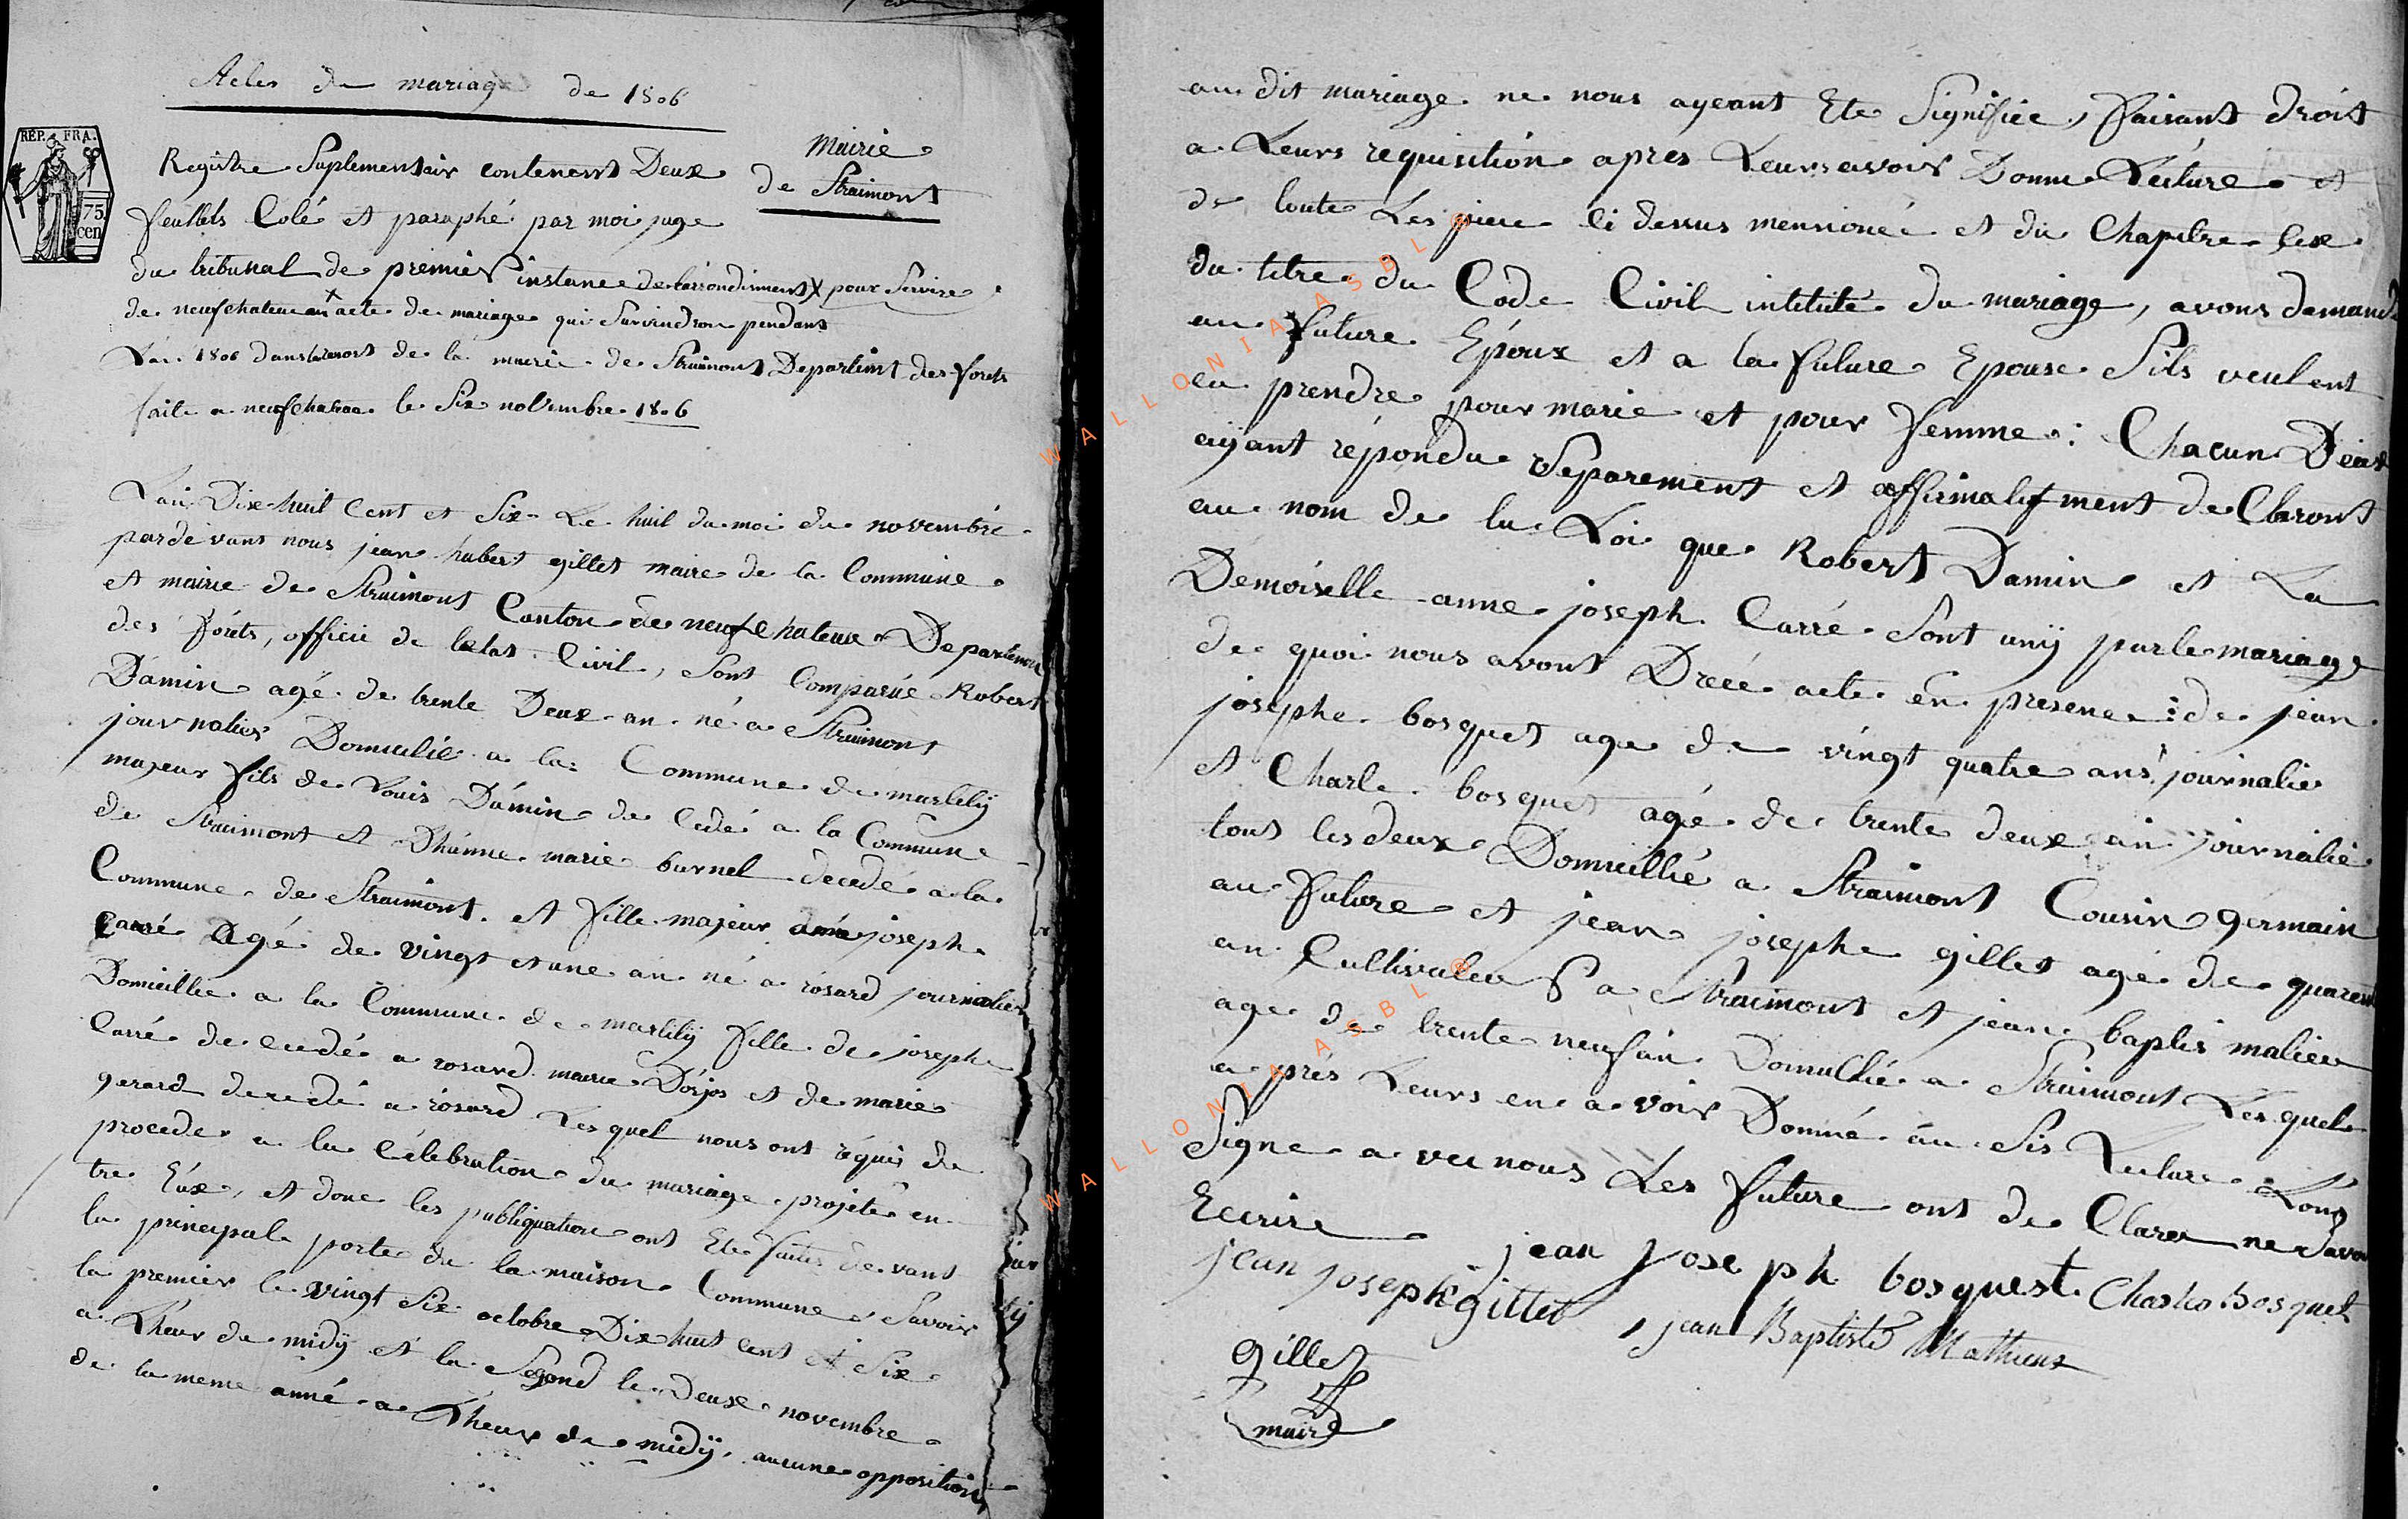 Actes de mariage de 1806
REP. FRA.
75
cen
Mairie
de Straimont
Registre Suplementair contenent Deux
feullets Coté et paraphé par moi juge
du tribunal de premier instance de larrondisment X pour Servire
de neufchateau au acte de mariage qui Survindron pendans
Lan 1806 dans le resort de la mairie de Straimont Departemt des forets
faite a neufchateau le Six nolvembre 1806
Lan Dix huit Cent et Six Le huit du moi du novembre
pardevant nous jean hubert gillet maire de la Commune
et mairie de Straimont Canton de neufchateau Departemen
des foréts, officié de letat Civil, Sont Comparue Robert
Damin agé de trente Deux an né a Straimont
journalier Domicilié a la Commune de martilÿ
majeur fils de Louis Damin de cedé a la Commune
de Straimont et Dhanne marie burnel decedé a la
Commune de Straimont. et fille majeur anne joseph
Carré agé de vingt et une an né a rosard journalier
Domicillie a la Commune de martilÿ fille de joseph
Carré de cedé a rosard mairie Dorjos et de marie
gerard decedé a rosard Lesquel nous ont réquis de
proceder a la Célebration du mariage projeté en
tre Eux, et donc les publiquation ont Ete faites devant
la principale porte de la maison Commune Savoir
la premier le vingt Six octobre Dix huit cent et Six
a Lheur de midÿ et la Segond le Deux novembre
de la meme anné a Lheur de midÿ, aucune opposition
au dit mariage ne nous ayeant Ete Signifiée, faisant droit
a Leurs requisition apres Leurs avoir Donné Lecture et
de toute Les piece ci dessus mensionée et du Chapitre Six
du titre du Code Civil intitulé du mariage, avons demandé
au future Epoux et a la future Epouse Sils veulent
ce prendre pour marie et pour femme: Chacun Deux
aÿant répondu Separement et affirmatifment de Claront
au nom de la Loi que Robert Damin et La
Demoiselle anne joseph Carré Sont unÿ par le mariage
de quoi nous avont Dreée acte en presence de jean
josephe bosquet age de vingt quatre ans, journalie
et Charle bosquet agé de trente deux an journalié
tous les deux Domicillié a Straimont Cousin germain
au future et jean josephe gillet agé de quarente
an Cultivateur a Straimont et jean baptis matieu
age de trente neuf an Domicillié a Straimont Les quels
a prés Leurs en a voir Donné au Sis Lecture Lons
Signe a vec nous Les future ont de Clarer ne Savoir
Ecrire jean joseph bosquest Charles bosquet
jean joseph gillet, jean Baptiste Mathieux
Gillet
maire
WALLONIA ASBL ®
WALLONIA ASBL ®